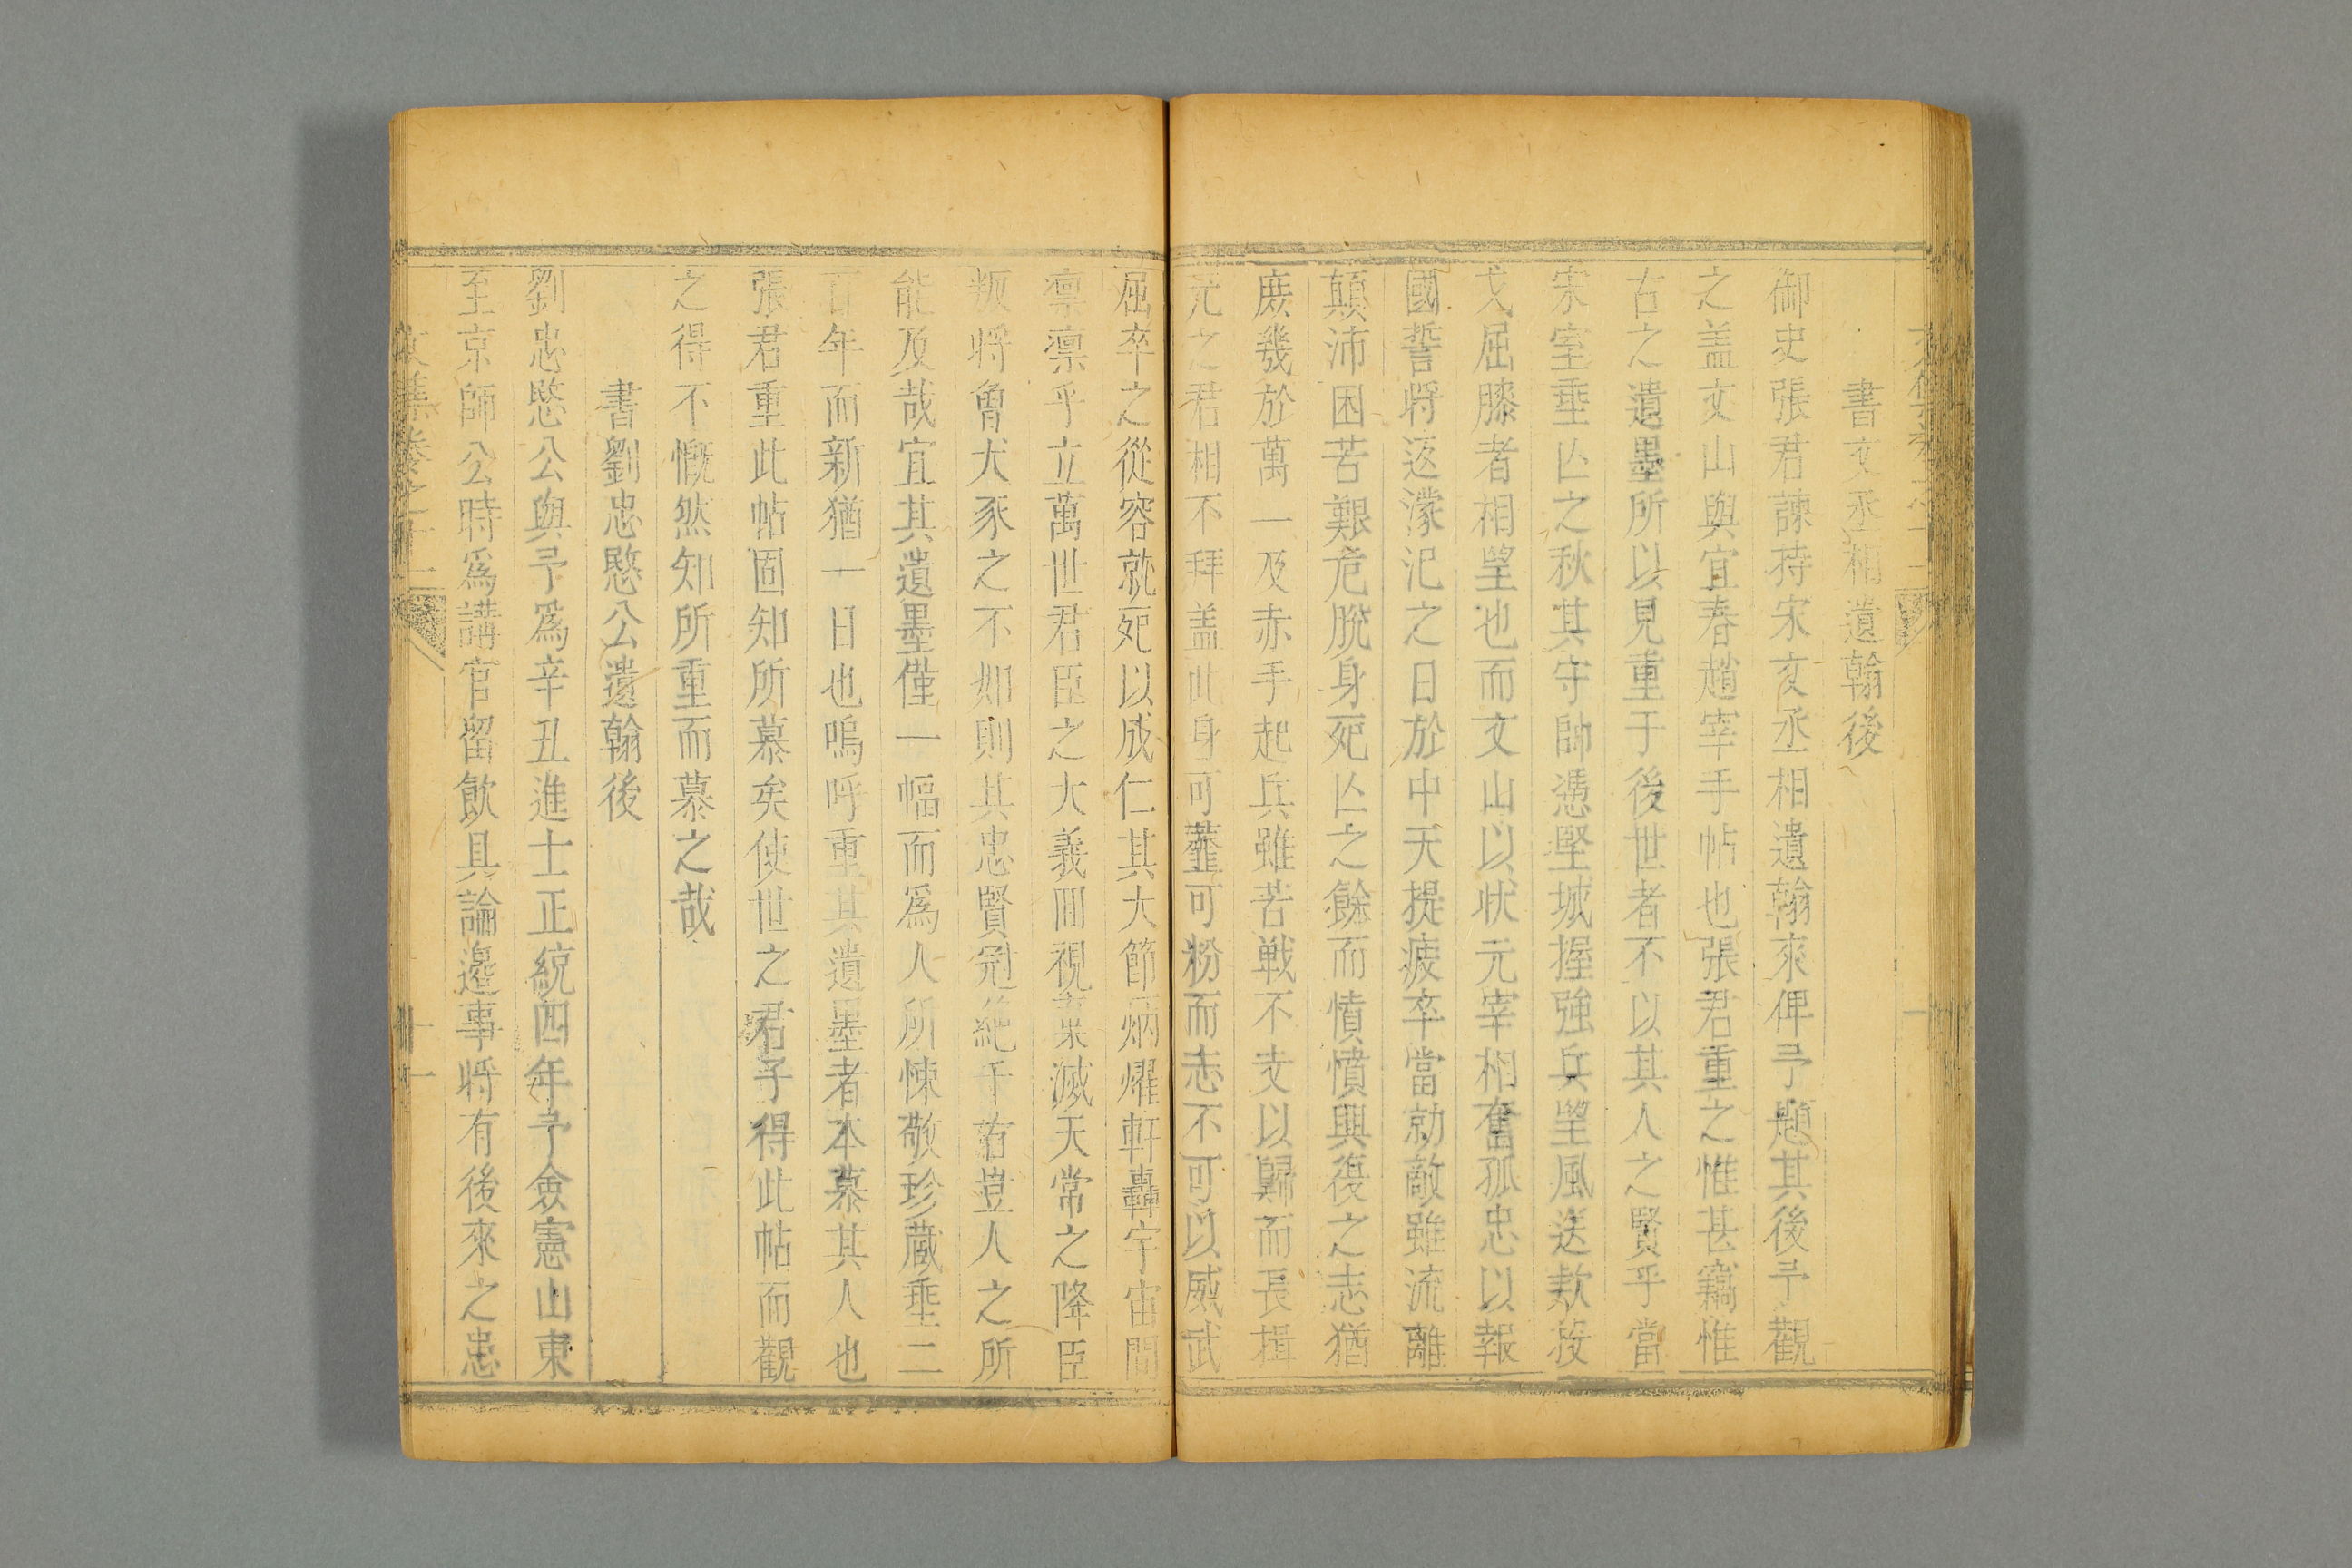 書文丞相遺翰後
御史張君諫持宋文丞相遺翰來俾予題其後予觀
之盖文山與宜春趙宰手帖也張君重之惟甚竊惟
古之遺墨所以見重于後世者不以其人之賢乎當
宋室垂亾之秋其守帥憑堅城握強兵望風送款投
戈屈膝者相望也而文山以狀元宰相奮孤忠以報
國誓將返濛汜之日於中天提疲卒當勍敵雖流離
顛沛困苦艱危脫身死亾之餘而憤憤興復之志猶
庶幾於萬一及赤手起兵雖苦戰不支以歸而長揖
元之君相不拜盖此身可虀可粉而志不可以威武
屈卒之從容就死以成仁其大節炳燿軒轟宇宙間
凛凛乎立萬世君臣之大義囬視棄滅天常之降臣
叛将曾犬豕之不如則其忠賢冠絶千古豈人之所
能及哉宜其遺墨僅一幅而爲人所悚敬珍藏垂二
百年而新猶一日也嗚呼重其遺墨者本慕其人也
張君重此帖固知所慕矣使世之君子得此帖而觀
之得不慨然知所重而慕之哉
書劉忠愍公遺翰後
劉忠愍公與予爲辛丑進士正統四年予僉憲山東
至京師公時爲講官留飲具論邊事將有後來之患
文集卷之十二
十一